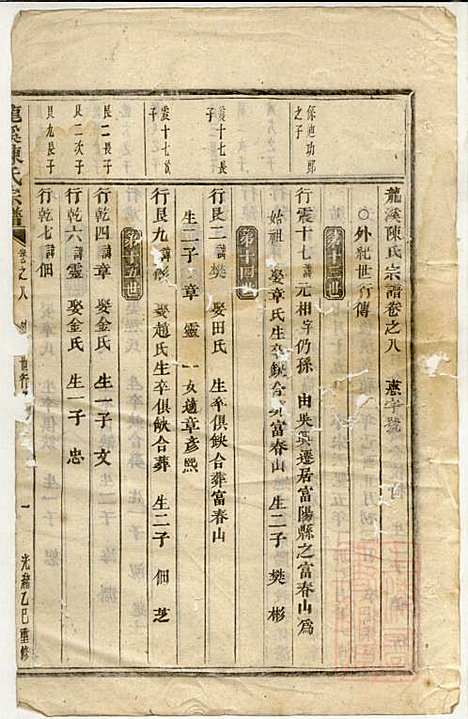 龍溪陳氏宗譜卷之八 憲字號
○外紀世行傳
第十三世
保迪功郎之子
行震十七 諱元相 字仍孫 由吳興遷居富陽縣之富春山爲
始祖 娶章氏 生卒缺 合葬富春山 生二子 樊 彬
第十四世
震十七長子
行艮二 諱樊 娶田氏 生卒俱缺 合葬富春山
生二子 章 靈 一女適章彥熙
震十七次子
行艮九 諱彬 娶趙氏 生卒俱缺 合葬 生二子 佃 芝
第十五世
艮二長子
行乾四 諱章 娶金氏 生一子 文
艮二次子
行乾六 諱靈 娶金氏 生一子 忠
艮九長子
行乾七 諱佃
龍溪陳氏宗譜
卷之八
世行
一
光緒乙巳重修